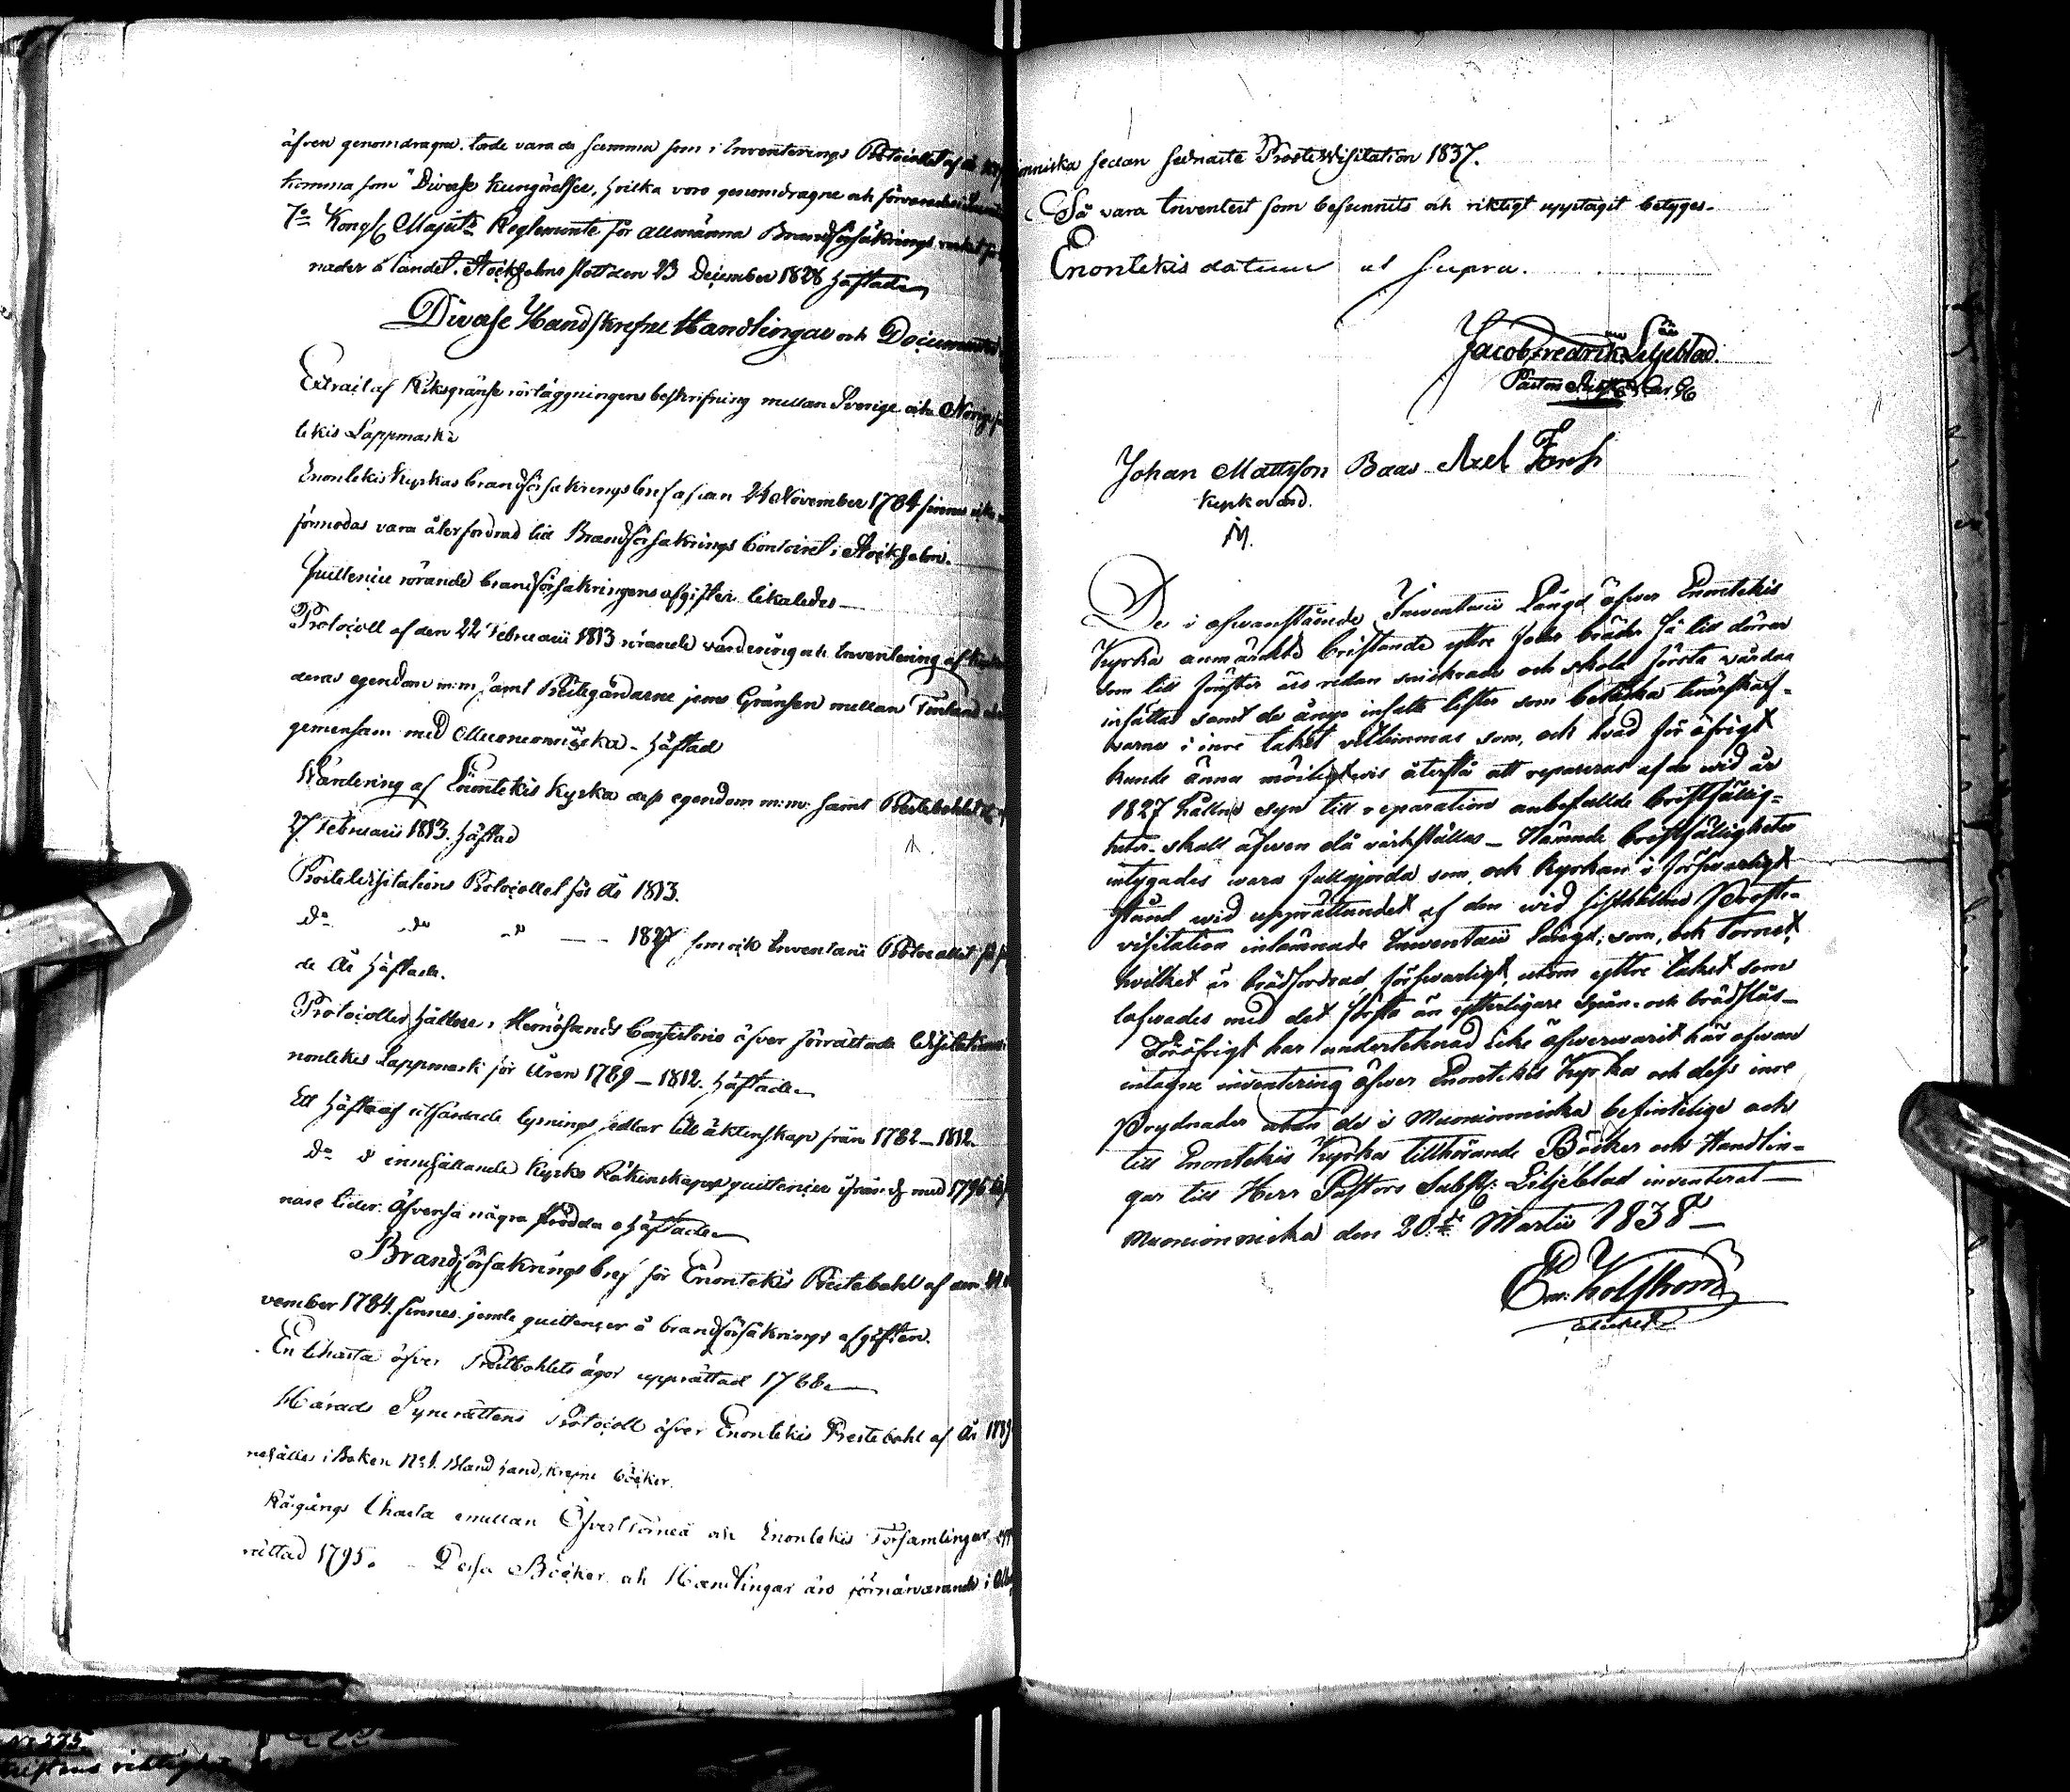 äfven genomdragna. torde vara de samma som i Inventerings Protocollet af
komma som "Diverse kungörelser, hvilka voro genomdragne och förvarade
7o Kongl Majsts Reglemente för Allmänna Brandförsäkrings verket
nader å landet. Stockholms slott den 23 December 1828 häftade
Diverse Handskrefne Handlingar och Documenter
Extract af Riksgränse rörläggningens beskrifning mellan Sverige och Norige
tekis Lappmark
Enontekis Kyrkas brandförsäkringsbref af den 24 November 1784 finnes icke
förmodas vara återfordrad till Brandförsäkrings Contoiret i Stockholm.
Quittencer rörande brandförsäkringens afgifter likaledes
Protocoll af den 22 Februarii 1813 rörande värdering och Inventering af
deras egendom m:m samt Prestegårdarne jemte Gränsen mellan Finland
gemensam med Muonioniska - häftad
Wärdering af Enontekis Kyrka dess egendom m:m: samt Prestebohlet
27 Februarii 1813. häftad
ProsteVisitations Protocollet för År 1813.
do do do — 1827 som och Inventarii Protocollet
de År häftade.
Protocoller hållne i Hernösands Consistorio öfver förrättade Visitationer
nontekis Lappmark för Åren 1789 – 1812. häftade
Ett häfte af utfärdade lysnings sedlar till äktenskap från 1782 – 1812.
do do innehållande Kyrko Räkenskaps quittencer ifrån och med 1796
nare tider. Äfvenså några strödda ohäftade
Brandförsäkrings bref för Enontekis Prestebohl af den 24
vember 1784. finnes jemte quittencer å brandförsäkrings afgiften.
En Charta öfver Prestbohlets ägor upprättad 1788.
Härads Syne rättens Protocoll öfver Enontekis Prestebohl af År
nehålles i Boken No 1. Bland handskrefne böcker.
Rågångs Charta emellan Öfver Torneå och Enontekis Församlingar, upp
rättad 1795. — Dessa Böcker och Handlingar äro förnärvarande i
onniska sedan sednaste ProsteVisitation 1837.
Så vara Inventerat som befunnits och riktigt upptagit betyges.
Enontekis datum ut supra.
Jacob Fredrik Liljeblad.
Pastors
Johan Mattsson Baas Axel Fors
Kyrkovärd.
De i ofvanstående Inventarii Längd öfver Enontekis
Kyrka anmärkte bristande yttre foder bräder så till dörrar
som till fönster äro redan snickrade och skola första vårdar
insättas samt de ännu insatta lister som betäcka tvärskarf-
varne i inre taket som, och hvad för öfrigt
kunde ännu möjligtvis återstå att repareras af de wid år
1827 hållne syn till reparation anbefallde bristfällig-
heter skall äfwen då värkställas — Nämnde bristfälligheter
intygades wara fullgjorda som, och Kyrkan i försvarligt
stånd wid upprättandet af den wid sisthållne Proste-
visitation inlämnade Inwentarii längd; som, och tornet,
hvilket är brädfordrad försvarligt, utom yttre taket som
lofwades med det första än ytterligare spån- och brädslås —
Föröfrigt har undertecknad icke öfwerwarit här ofwan
intagne inventering öfwer Enontekis Kyrka och dess inre
Prydnader utan de i Muonionniska befintelige och
till Enontekis Kyrka tillhörande Böcker och Handlin-
gar till Herr Pastors Subst: Liljeblad inventerat —
Muonionniska den 20:de Martii 1838 —
Em: Kolström